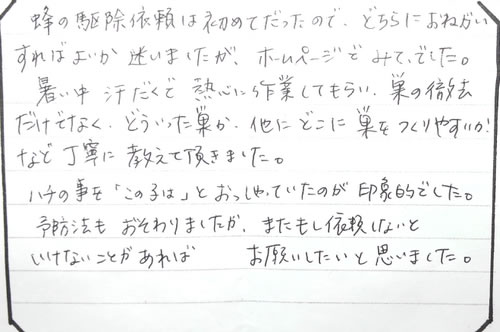 蜂の駆除依頼は初めてだったので、どちらにおねがい
すればよいか 迷いましたが、ホームページでみて、でした。
暑い中 汗だくで 熱心に作業してもらい、巣の撤去
だけでなく、どういった巣か、他にどこに巣をつくりやすいか
など丁寧に教えて頂きました。
ハチの事を「この子は」とおっしゃっていたのが印象的でした。
予防法も おそわりましたが、またもし依頼しないと
いけないことがあれば お願いしたいと思いました。